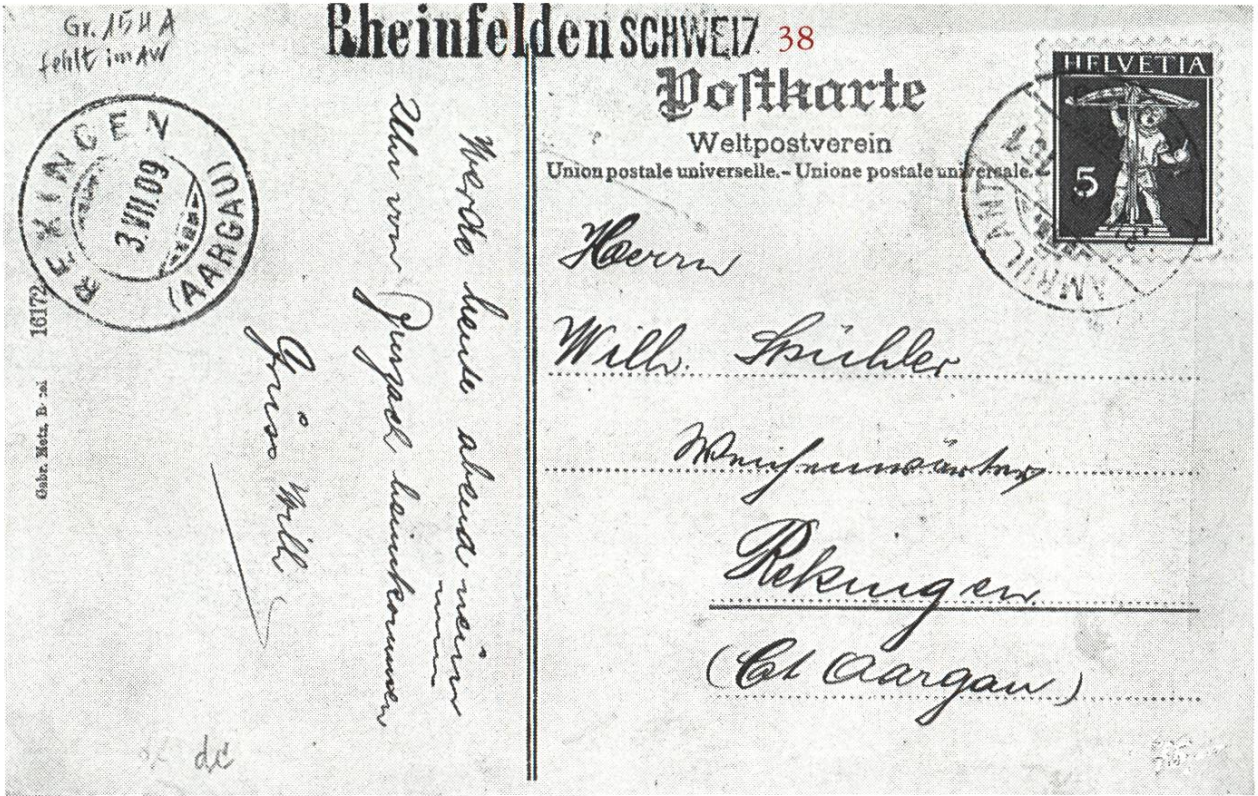 Gr. 15 H A
fehlt im AW
Rheinfelden SCHWEIZ
38
Postkarte
Weltpostverein
Union postale universelle.- Unione postale universale.
HELVETIA
5
AMBULANT
REKINGEN
3.VII.09
(AARGAU)
16172
Gebr. Metz, B sel
Werde heute abend neun
Uhr von Zurzach heimkommen
Gruss Willi
Herrn
Willi. Spühler
Weichenwärter
Rekingen
(Ct Aargau)